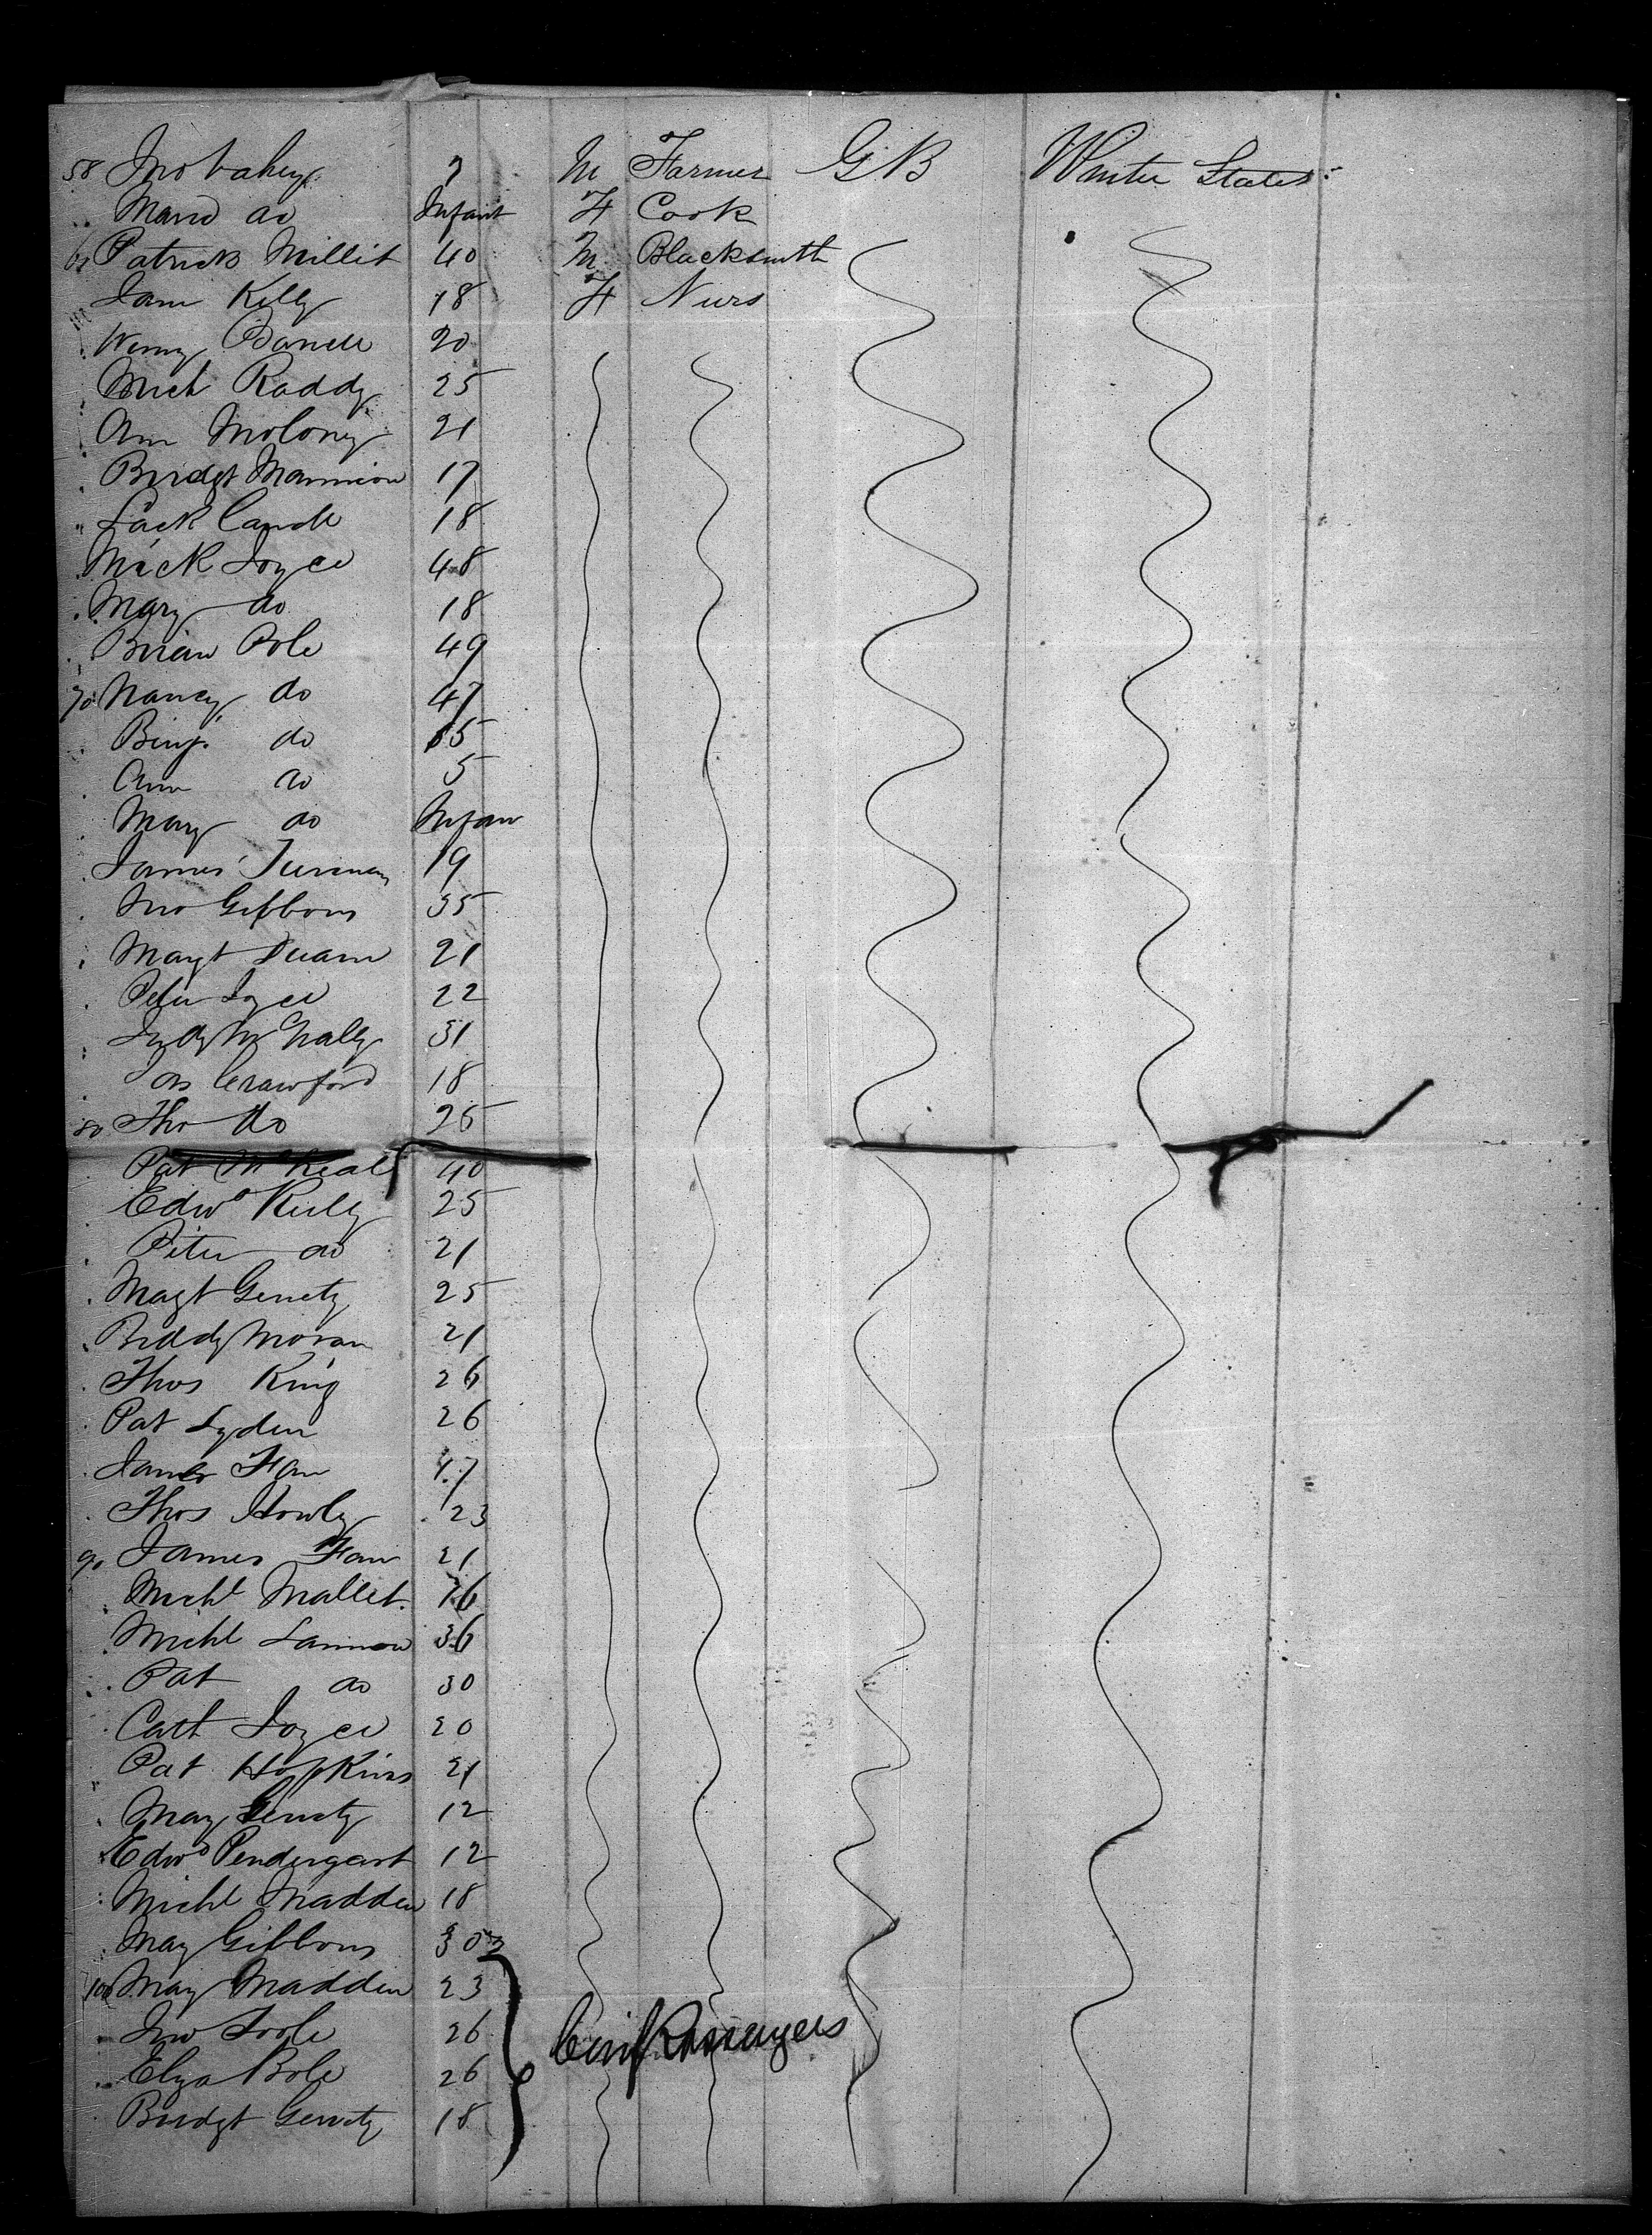 58 Jno Fahey 7 M Farmer GB United States
" Maria do Infant F Cook
60 Patrick Millit 40 M Blacksmith
Jane Kelly 18 F Nurs
20
Mich Roddy 25
Ann Molony 21
Bridgt Mannion 17
18
Mick Joyce 48
Mary do 18
Brian Bole 49
70 Nancy do 47
Binj. do 15
Ann do 5
Mary do Infan
James 19
Jno Gibbons 35
Margt Duane 21
Peter Joyce 22
Judy McNally 31
Jas Crawford 18
80 Tho do 25
Pat 40
Edwd Kelly 25
Peter do 21
Magt Gerrety 25
Biddy Moran 21
Thos King 26
Pat Lyden 26
James 47
Thos Howly 23
90 James 21
Michl Mallet 16
Michl Lannon 36
Pat do 30
Cath Joyce 20
Pat Hopkins 21
Mary Gerrety 12
Edwd Pendergast 12
Michl Madden 18
Mary Gibbons 30
100 Mary Madden 23
Jno 26
Eliza Bole 26
Passengers
Bridgt Gerrety 18